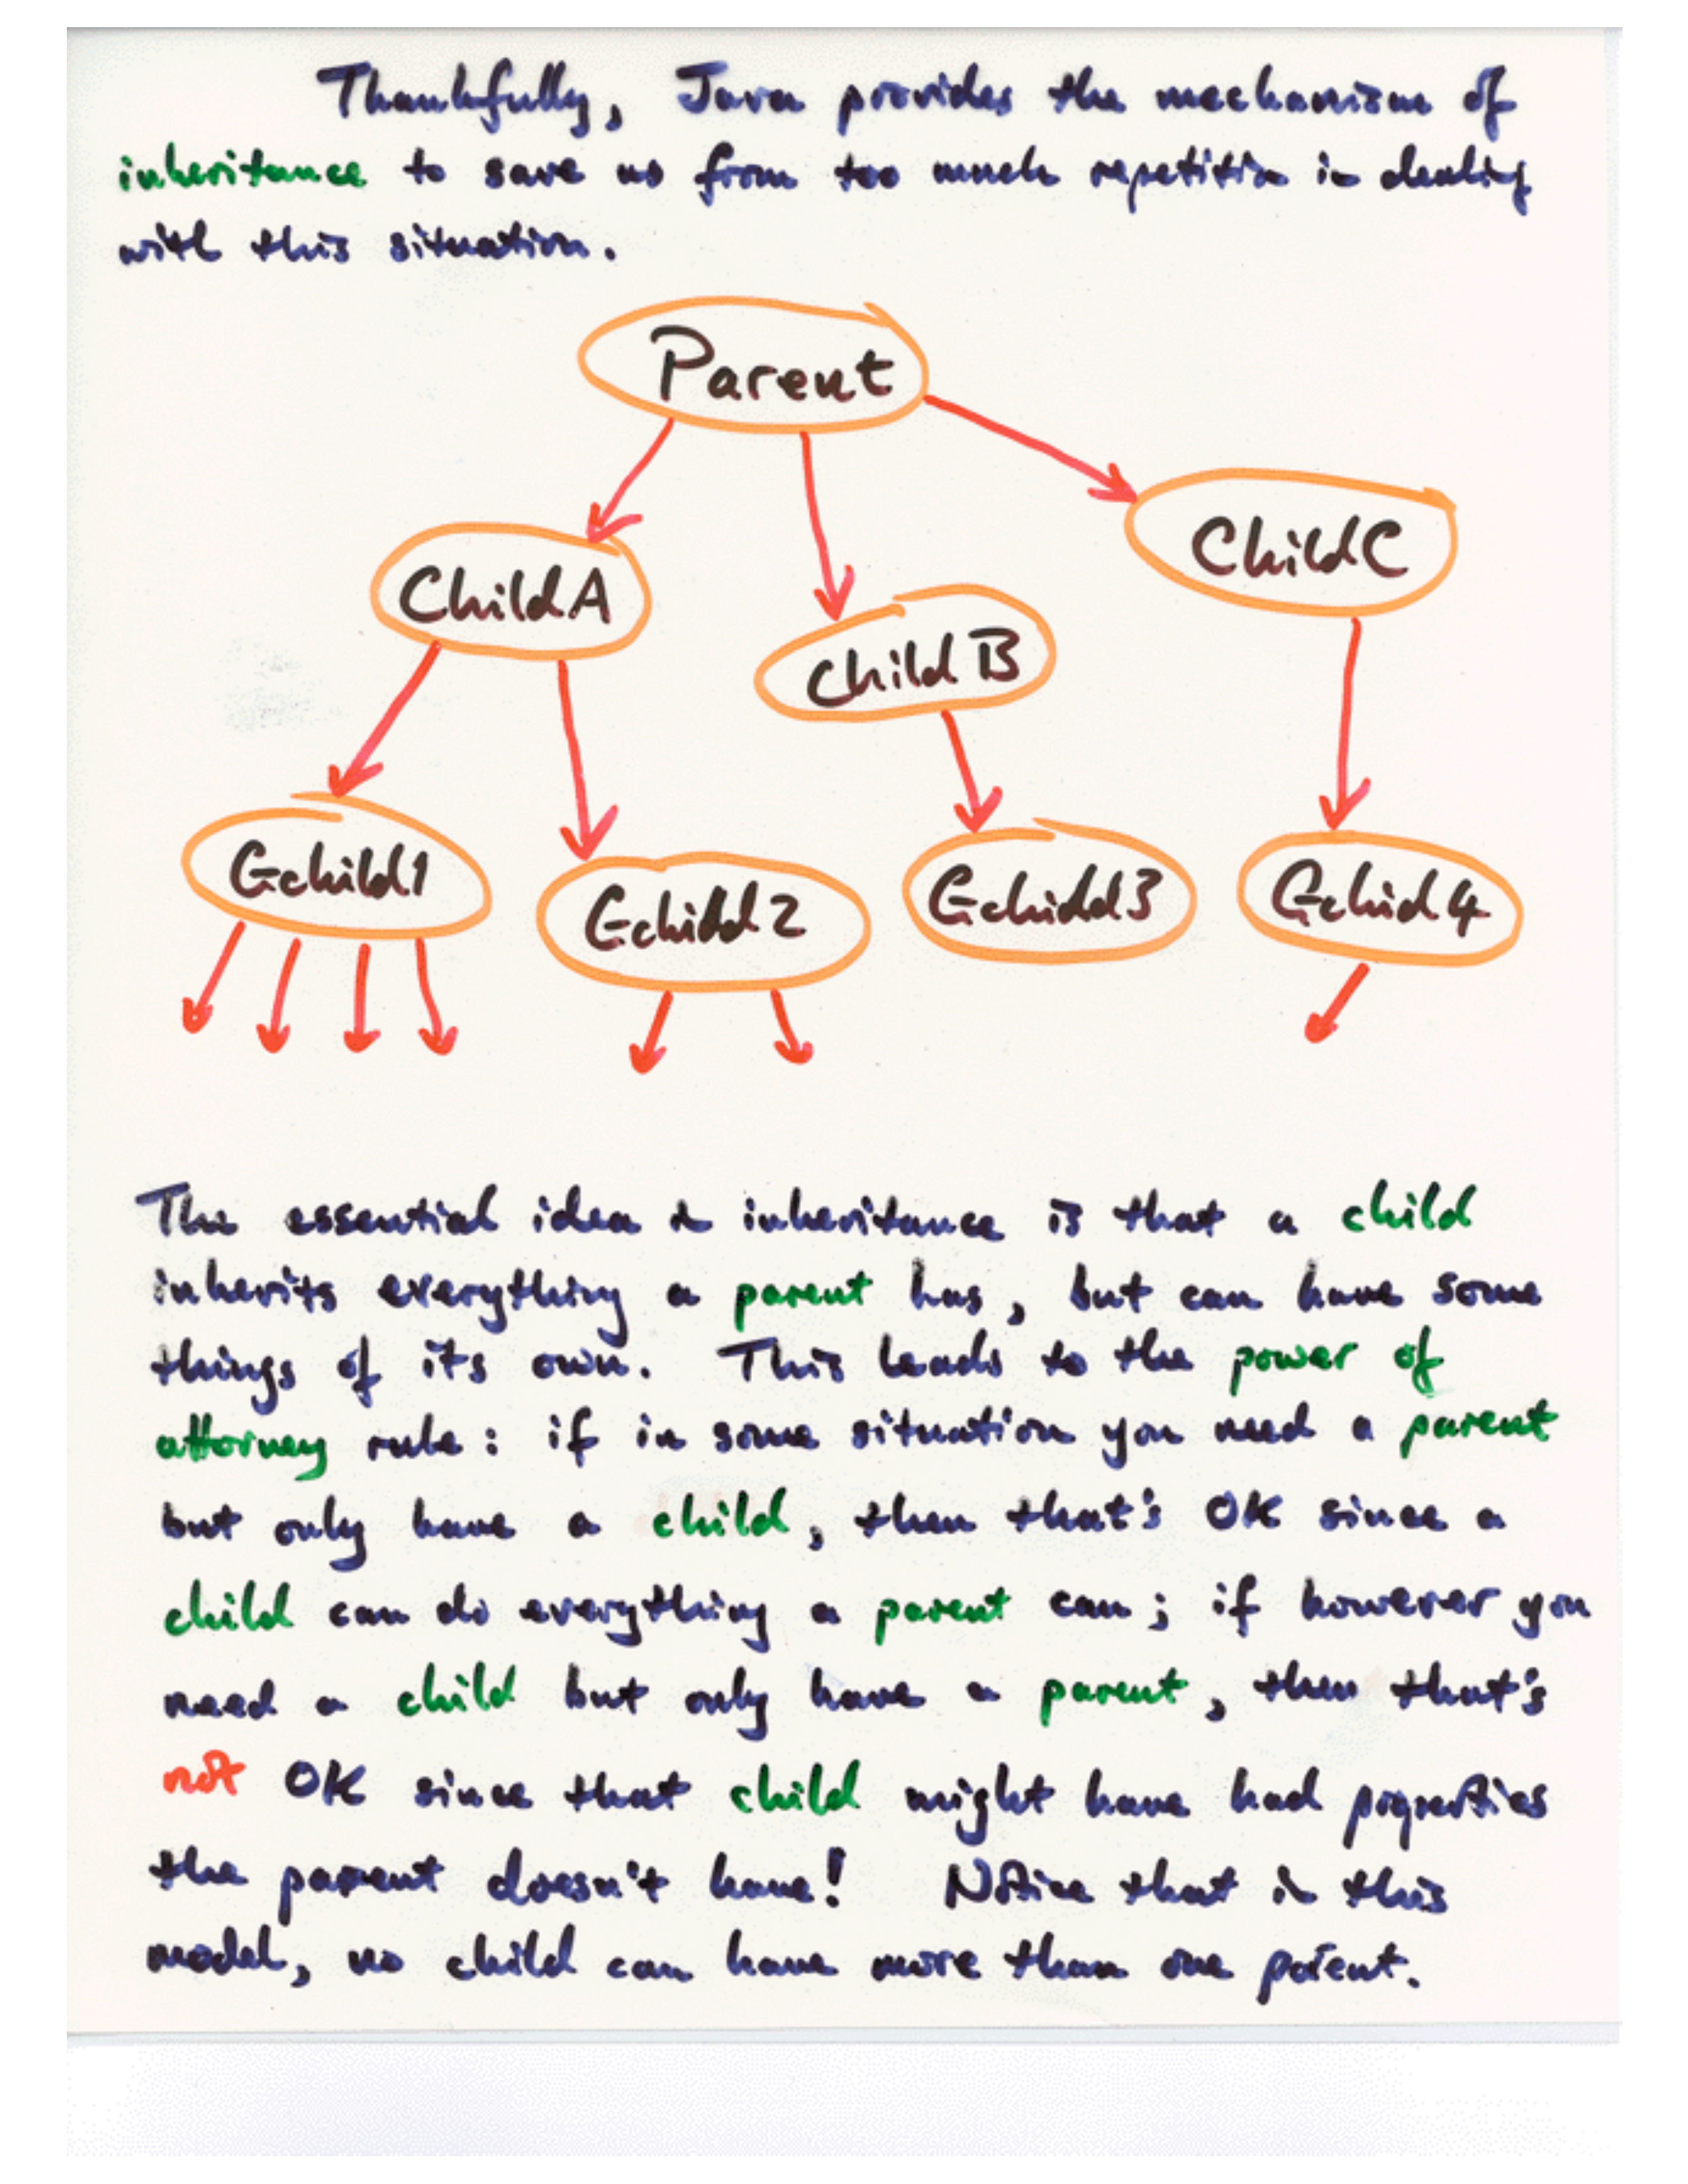 Thankfully, Java provides the mechanism of
inheritance to save us from too much repetition in dealing
with this situation.
Parent
ChildA
ChildB
ChildC
Gchild1
Gchild2
Gchild3
Gchid4
The essential idea in inheritance is that a child
inherits everything a parent has, but can have some
things of its own. This leads to the power of
attorney rule: if in some situation you need a parent
but only have a child, then that's OK since a
child can do everything a parent can; if however you
need a child but only have a parent, then that's
not OK since that child might have had properties
the parent doesn't have! Notice that in this
model, no child can have more than one parent.